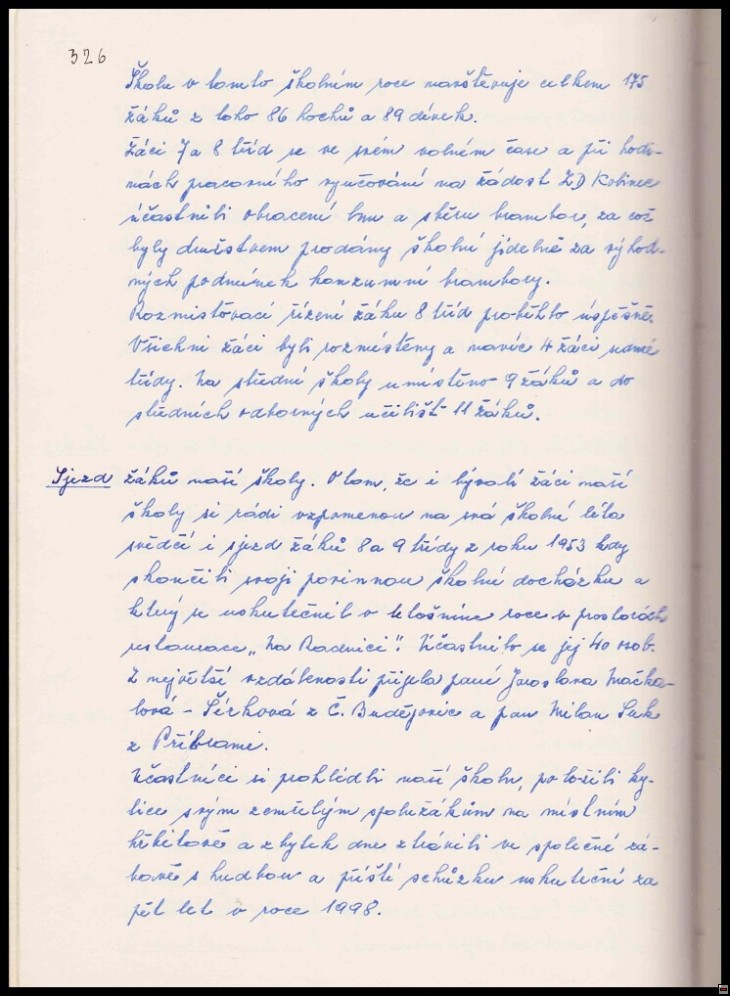 326
Školu v tomto školním roce navštěvuje celkem 175
žáků z toho 86 hochů a 89 dívek.
Žáci 7 a 8 tříd se ve svém volném čase a při hodi-
nách pracovního vyučování na žádost ZD Kolinec
účastnili obracení lnu a sběru brambor, za což
byly družstvem prodány školní jídelně za výhod-
ných podmínek konzumní brambory.
Rozmisťovací řízení žáků 8 tříd proběhlo úspěšně.
Všichni žáci byli rozmístěny a navíc 4 žáci sedmé
třídy. Na střední školy umístěno 9 žáků a do
středních odborných učilišť 11 žáků.
Sjezd žáků naší školy. O tom, že i bývalí žáci naší
školy si rádi vzpomenou na svá školní léta
svědčí i sjezd žáků 8 a 9 třídy z roku 1953 kdy
skončili svoji povinnou školní docházku a
který se uskutečnil v letošním roce v prostorách
restaurace „Na Radnici". Účastnilo se jej 40 osob.
Z největší vzdálenosti přijela paní Jaroslava Mačka-
lová - Šírková z Č. Budějovic a pan Milan Suk
z Příbrami.
Účastníci si prohlédli naší školu, položili ky-
tice svým zemřelým spolužákům na místním
hřbitově a zbytek dne ztrávili ve společné zá-
bavě s hudbou a příští schůzku uskuteční za
pět let v roce 1998.